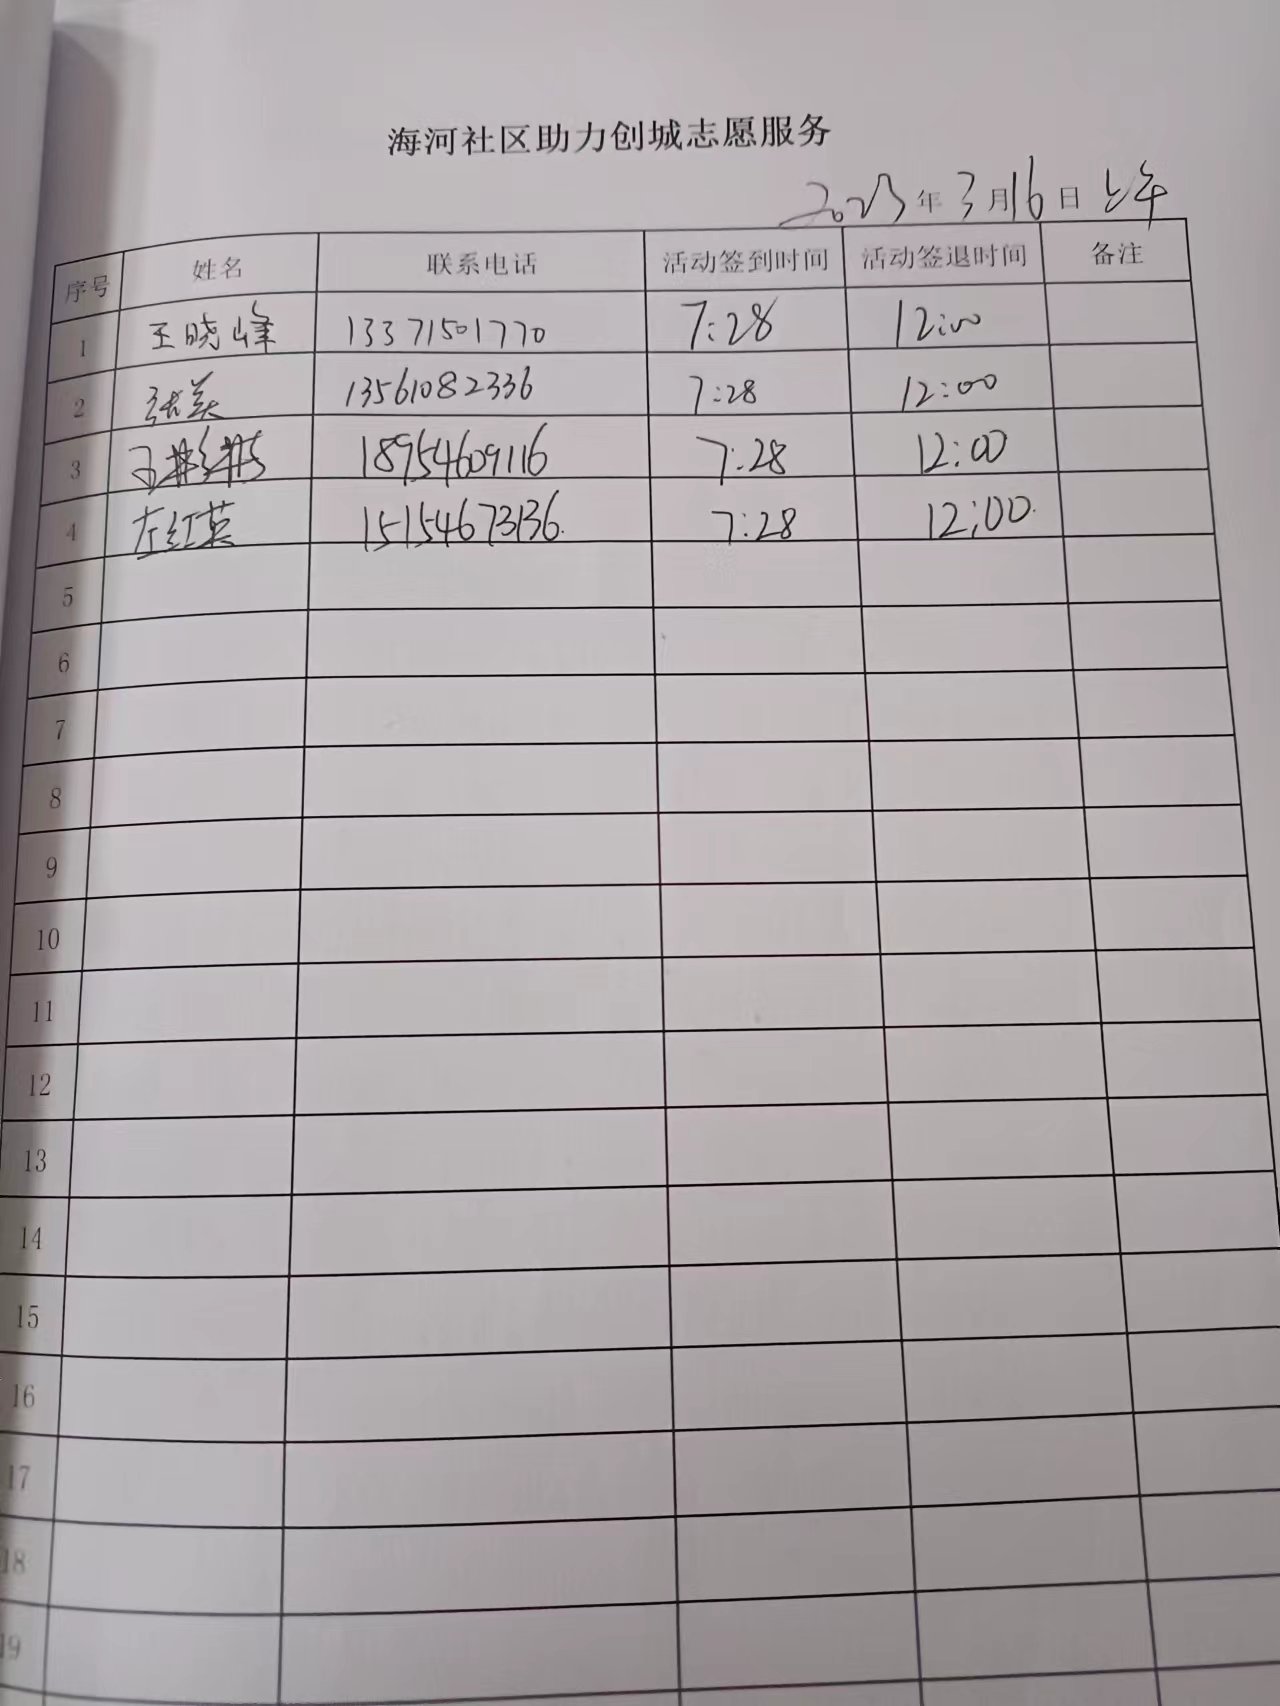 海河社区助力创城志愿服务
2023年3月16日 上午
序号 姓名 联系电话 活动签到时间 活动签退时间 备注
1 王晓峰 13371501770 7:28 12:00
2 张美 13561082336 7:28 12:00
3 王彬彬 18954609116 7:28 12:00
4 左红英 15154673136. 7:28 12:00.
5
6
7
8
9
10
11
12
13
14
15
16
17
18
19